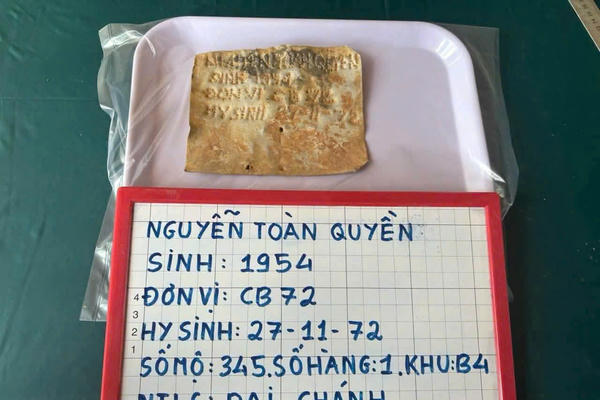 NGUYỄN TOÀN QUYỀN
SINH 1954
ĐƠN VỊ
HY SINH 27 11 72
NGUYỄN TOÀN QUYỀN
SINH: 1954
ĐƠN VỊ: CB 72
HY SINH: 27-11-72
SỐ MỘ: 345. SỐ HÀNG: 1. KHU: B4
NTLS: ĐẠI CHÁNH
4
3
2
1